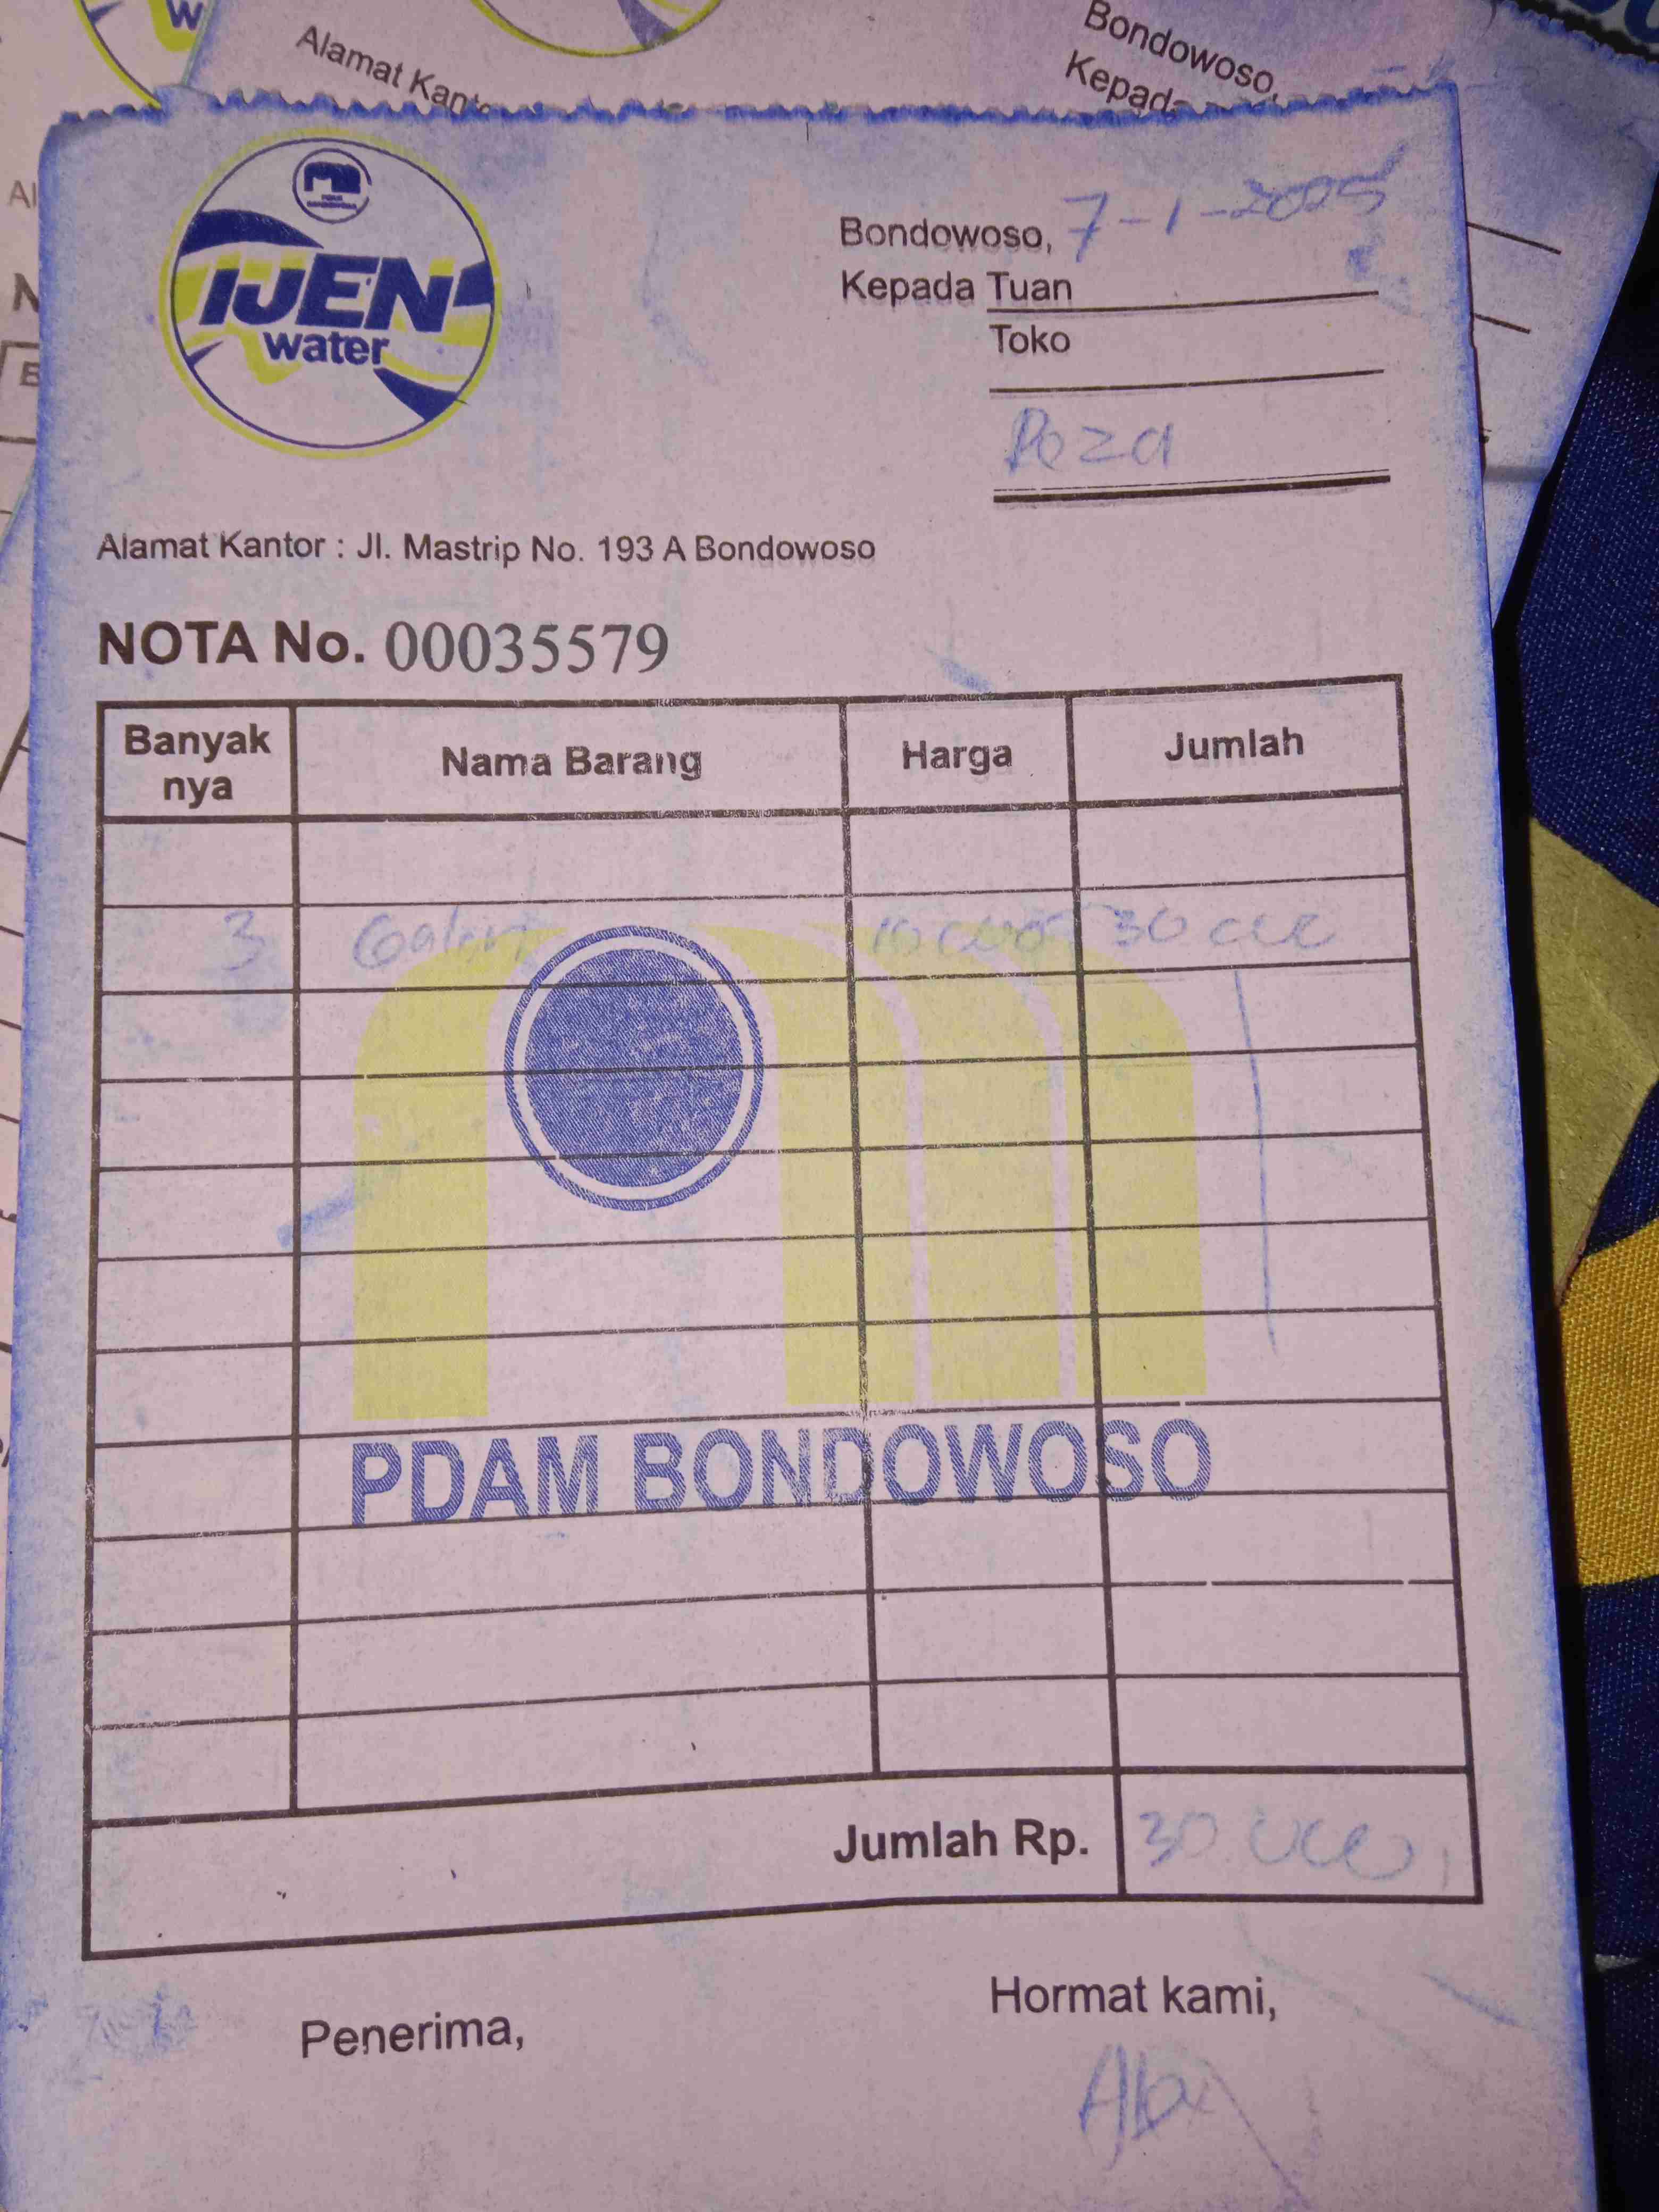 W
Alamat Kanto
Bondowoso,
Kepada
IJEN
water
Bondowoso, 7-1-2025
Kepada Tuan
Toko
Poza
Alamat Kantor : Jl. Mastrip No. 193 A Bondowoso
NOTA No. 00035579
Banyak nya Nama Barang Harga Jumlah
3 Galon 10 000 30 000
PDAM BONDOWOSO
Jumlah Rp. 30.000,
Penerima,
Hormat kami,